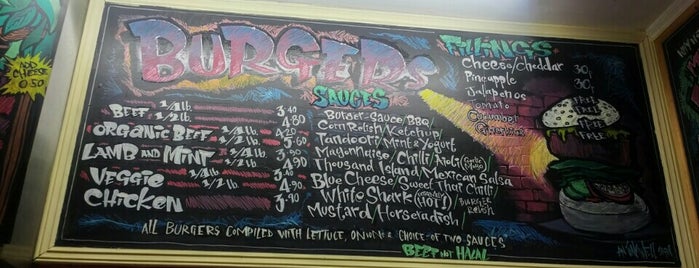 BURGERS
BEEF 1/4lb. 3.40
1/2 lb. 4.80
ORGANIC BEEF 1/4lb. 4.20
1/2lb.
LAMB AND MINT 1/4lb. 3.90
1/2lb. 4.90
VEGGIE 1/4lb.
1/2lb. 4.90
CHICKEN 3.90
SAUCES
Burger-Sauce/BBQ/
Corn Relish/Ketchup/
Tandoori/Mint & Yogurt
Mayonnaise/Chilli/Aioli (Garlic Mayo)
Thousand Island/Mexican Salsa
Blue Cheese/Sweet Thai Chilli
White Shark (HOT!)/BURGER RELISH
Mustard/Horseradish/
FILLINGS
Cheese/Cheddar 30p
Pineapple
Jalapenos 30p
Tomato FREE
Cucumber FREE
Gherkins FREE
ALL BURGERS COMPILED WITH LETTUCE, ONION & CHOICE OF TWO SAUCES
BEEF NOT HALAL
ADD
CHEESE
0.50